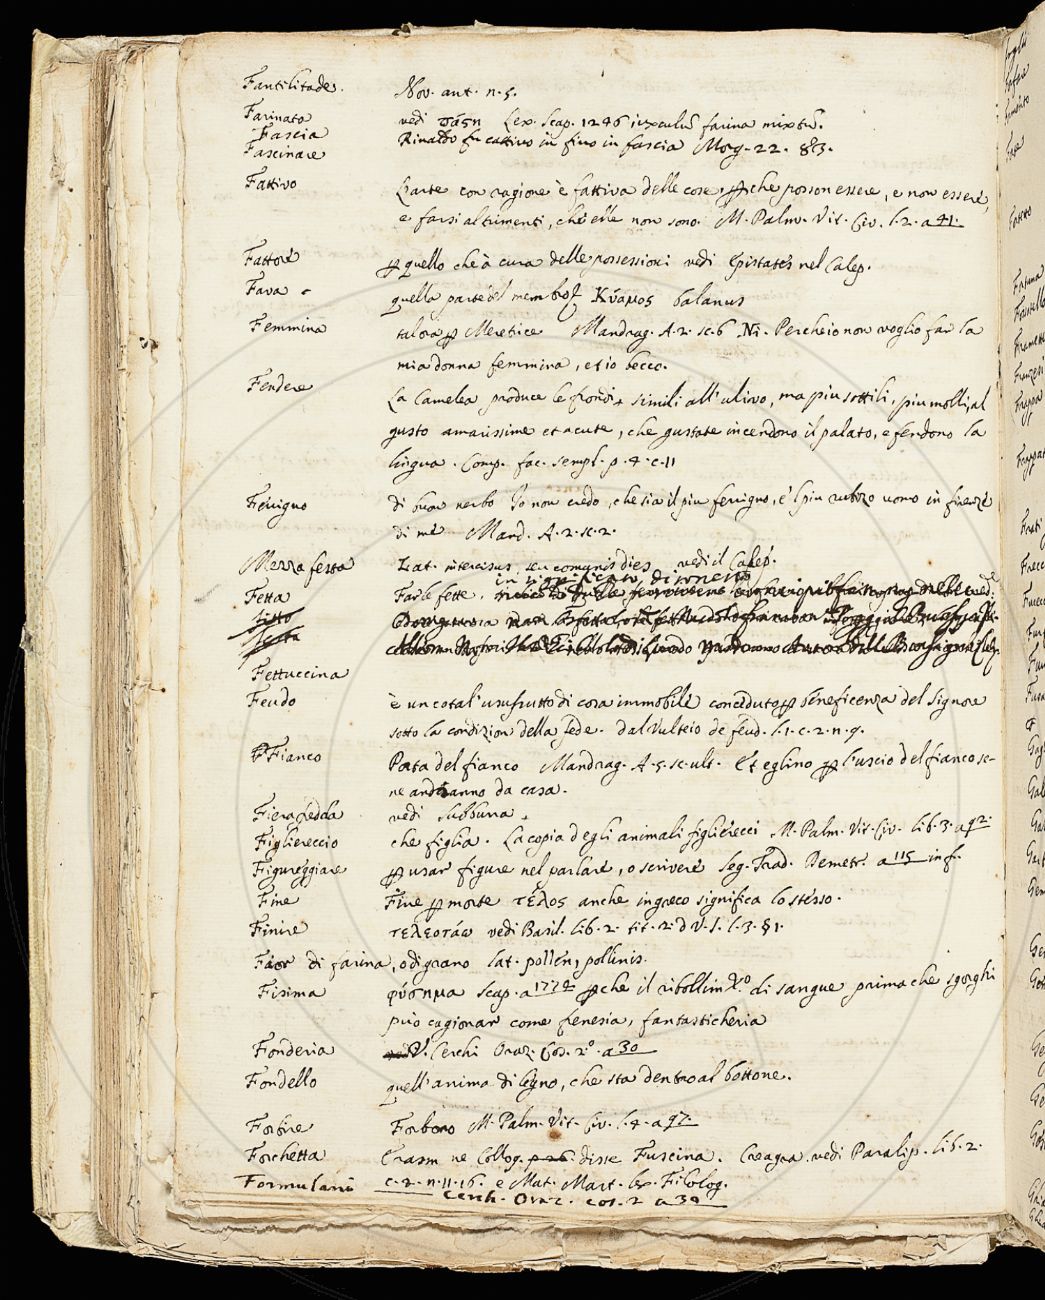 Fantilitade. Nov. ant. n. 5.
Farinato vedi πάςη Lex. Scap. 1246 farina mixtũ.
Fascia Rinaldo fu cattivo in fino in fascia Morg. 22. 83.
Fascinare
Fattivo L'arte con ragione è fattiva delle cose, ꝑche posson essere, e non essere,
e farsi altrimenti, ch'elle non sono. M. Palm. Vit. Civ. l. 2. a 41.
Fattore ꝑ quello che à cura delle possessioni vedi Epistates nel Calep.
Fava quella parte del membro Κύαμος balanus
Femmina talora ꝑ Meretrice Mandrag. A. 2. sc. 6 Ni. Perch'io non voglio far la
mia donna femmina, et io becco.
Fendere La Camelea produce le frondi simili all'ulivo, ma piu sottili, piu molli, al
gusto amarissime et acute, che gustate incendono il palato, e fendono la
lingua. Comp. fac. sempl. p. 4. c. 11
Ferrigno di buon nerbo Io non credo, che sia il piu ferrigno, e 'l piu rubizo uomo in firenze
di me Mand. A. 2. sc. 2.
Mezza festa Lat. intercisus, seu comunis dies vedi il Calep.
Fetta Far le fette.
Fettuccina
Feudo è un cotal' usufrutto di cosa immobile conceduto ꝑ beneficenza del Signore
sotto la condizion della fede. dal Vulteio de feud. l. 1. c. 2. n. 9.
Fianco Porta del fianco Mandrag. A. 5. sc. ult. Et eglino ꝑ l'uscio del fianco se
ne andranno da casa.
Fiera fredda vedi Subbuna.
Figliereccio che figlia. La copia degli animali figlierecci M. Palm. Vit. Civ. lib. 3. a 92.
Figureggiare ꝑ usar figure nel parlare, o scrivere Seg. Trad. Demetr. a 115 in f.
Fine Fine ꝑ morte τέλος anche in greco significa lo stesso.
Finire τελεοτάω vedi Basil. lib. 2. tit. 2. d V. S. l. 3. § 1.
Fior di farina, o di grano lat. pollen, pollinis.
Fisima φύσημα Scap. a 1774 ꝑche il ribollimẽto di sangue prima che sgorghi
può cagionar come frenesia, fantasticheria
Fonderia V. Cerchi Oraz. Cos. 2.º a 30
Fondello quell'anima di legno, che sta dentro al bottone.
Forbire Forbono M. Palm. Vit. Civ. l. 4. a 97.
Forchetta Erasm ne Colloq. disse Fuscina. Creagra. vedi Paralip. lib. 2.
c. 2. n. 11. 16. e Mat. Mart. lex. Filolog.
Formulario Cerch. Oraz. cos. 2 a 30